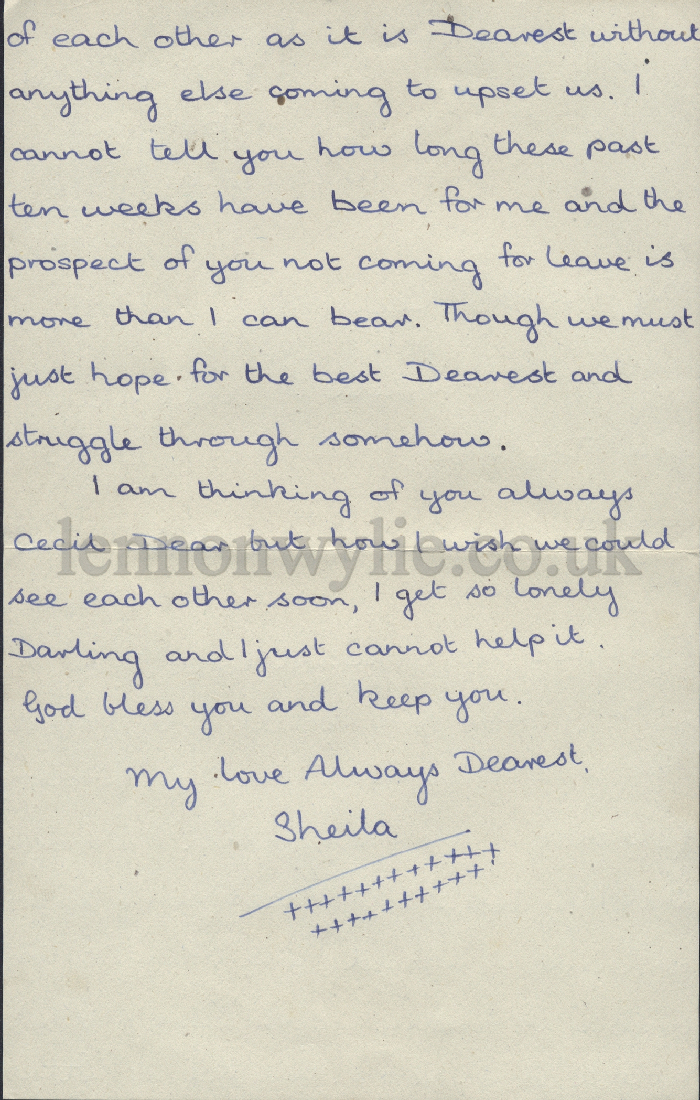 of each other as it is Dearest without
anything else coming to upset us. I
cannot tell you how long these past
ten weeks have been for me and the
prospect of you not coming for leave is
more than I can bear. Though we must
just hope for the best Dearest and
struggle through somehow.
I am thinking of you always
Cecil Dear but how I wish we could
lennonwylie.co.uk
see each other soon, I get so lonely
Darling and I just cannot help it.
God bless you and keep you.
My love Always Dearest,
Sheila
++++++++++++
++++++++++